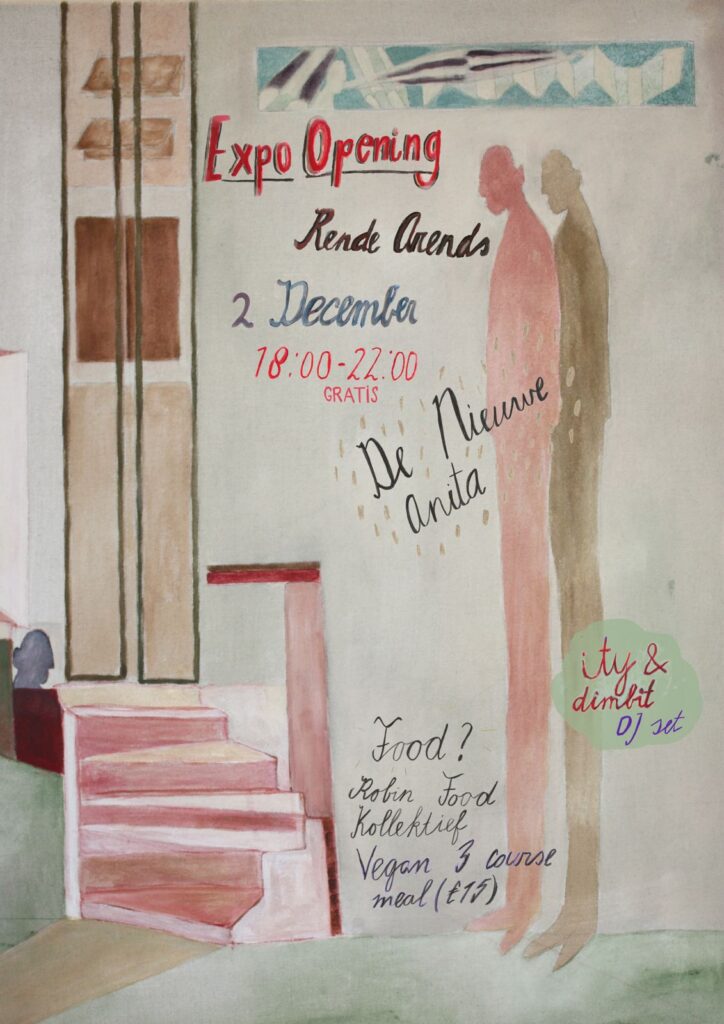 Expo Opening
Rende Arends
2 December
18:00-22:00
GRATIS
De Nieuwe
Anita
ity &
dimbit
DJ set
Food?
Robin Food
Kollektief
Vegan 3 course
meal (€15)